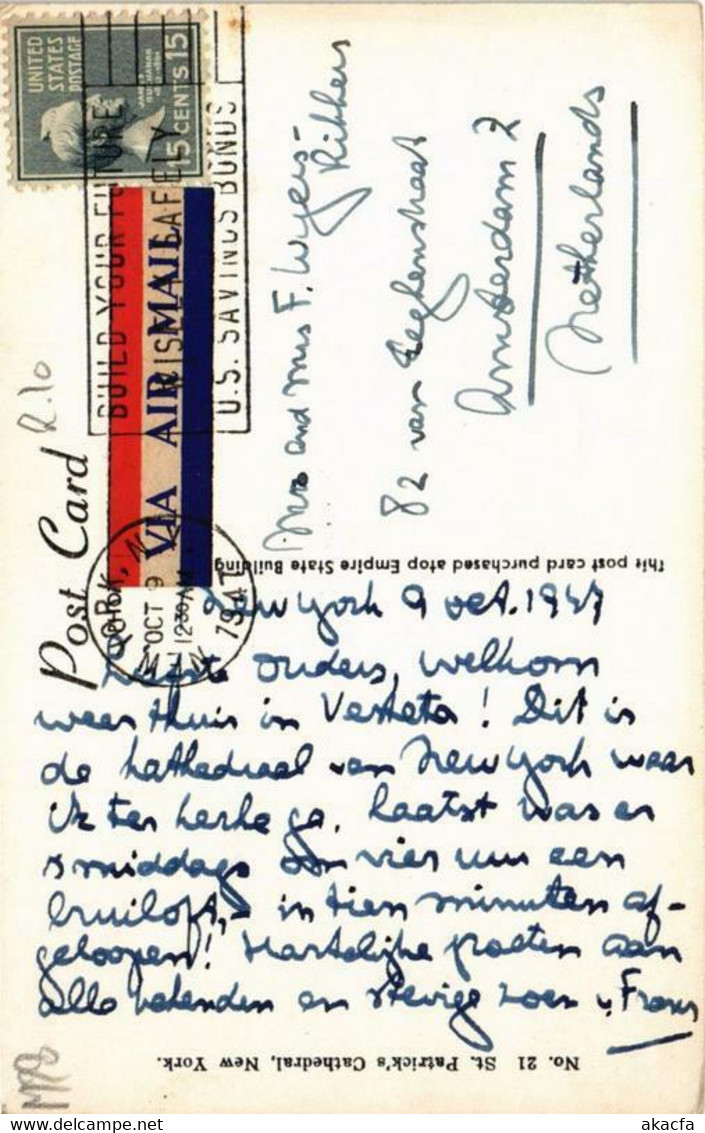 UNITED
STATES
POSTAGE
JAMES
BUCHANAN
15 CENTS 15
BUILD YOUR FUTURE
WISELY SAFELY
U.S. SAVINGS BONDS
VIA AIR MAIL
YORK, N.Y.
OCT 9
12 30 AM
1947
Post Card
R.10
Mr and Mrs F. Wyers-
Ritters
82 van Eeghenstraat
Amsterdam Z
Netherlands
This post card purchased atop Empire State Building
New York 9 oct. 1947
Liefste ouders, welkom
weer thuis in
! Dit is
de kathedraal van New York waar
ik ter kerke ga. Laatst was er
's middags om vier uur een
bruiloft, - in tien minuten af-
geloopen! Hartelijke groeten aan
alle bekenden en stevige zoen v. Frans
No. 21 St. Patrick's Cathedral, New York.
akacfa